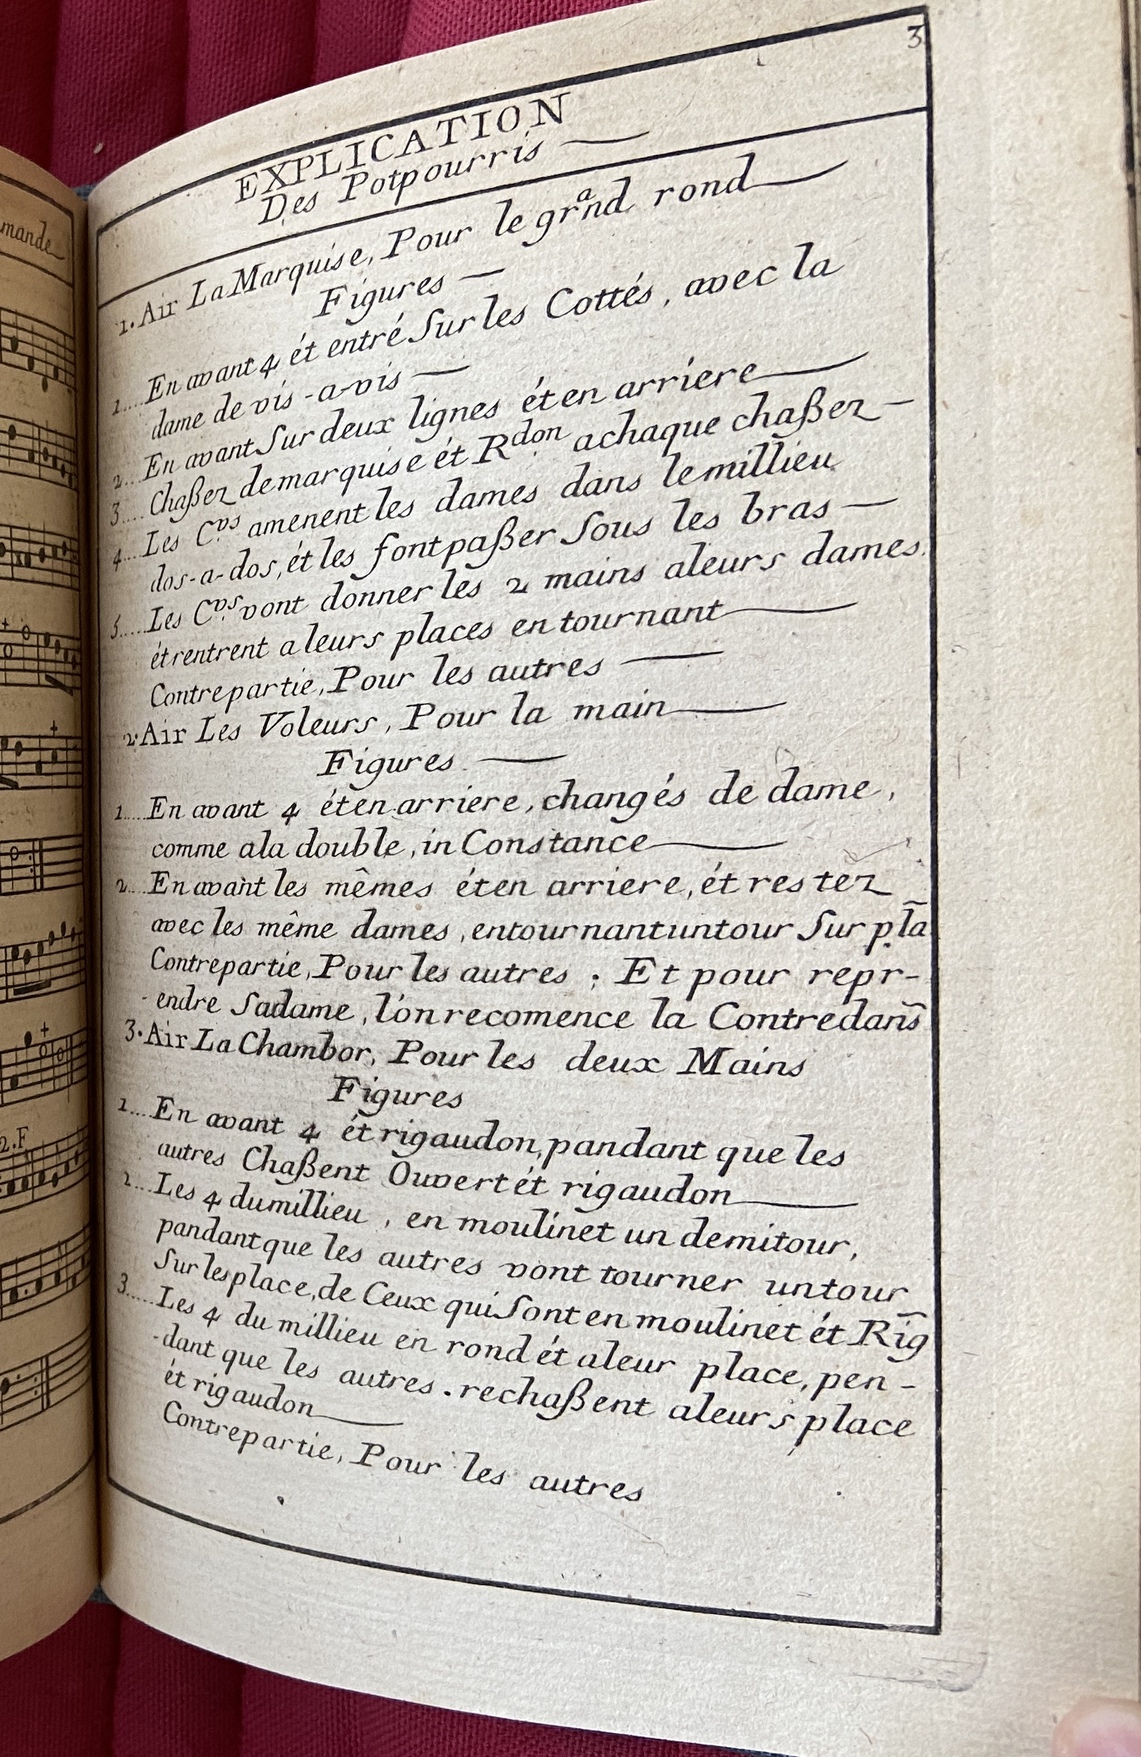 mande
2.F
3
EXPLICATION
Des Potpourris
1. Air La Marquise, Pour le grand rond
Figures
1.... En avant 4 ét entré Sur les Cottés, avec la
dame de vis-a-vis
2... En avant Sur deux lignes ét en arriere
3.... Chaßez de marquise ét Rdon a chaque chaßez
4... Les C.vs amenent les dames dans le millieu
dos-a-dos, ét les font paßer Sous les bras
5.... Les C.vs vont donner les 2 mains a leurs dames.
ét rentrent a leurs places en tournant
Contrepartie, Pour les autres
2. Air Les Voleurs, Pour la main
Figures
1... En avant 4 ét en arriere, changés de dame,
comme a la double, in Constance
2... En avant les mêmes ét en arriere, ét restez
avec les même dames, en tournant un tour Sur pla
Contrepartie, Pour les autres ; Et pour repr-
-endre Sa dame, l'on recomence la Contredans̃
3. Air La Chambor, Pour les deux Mains
Figures
1... En avant 4 ét rigaudon, pandant que les
autres Chaßent Ouvert ét rigaudon
2... Les 4 du millieu, en moulinet un demi tour,
pandant que les autres vont tourner un tour
Sur les place, de Ceux qui Sont en moulinet ét Rig̃
3.... Les 4 du millieu en rond ét a leur place, pen-
-dant que les autres. rechaßent a leurs place
ét rigaudon
Contrepartie, Pour les autres